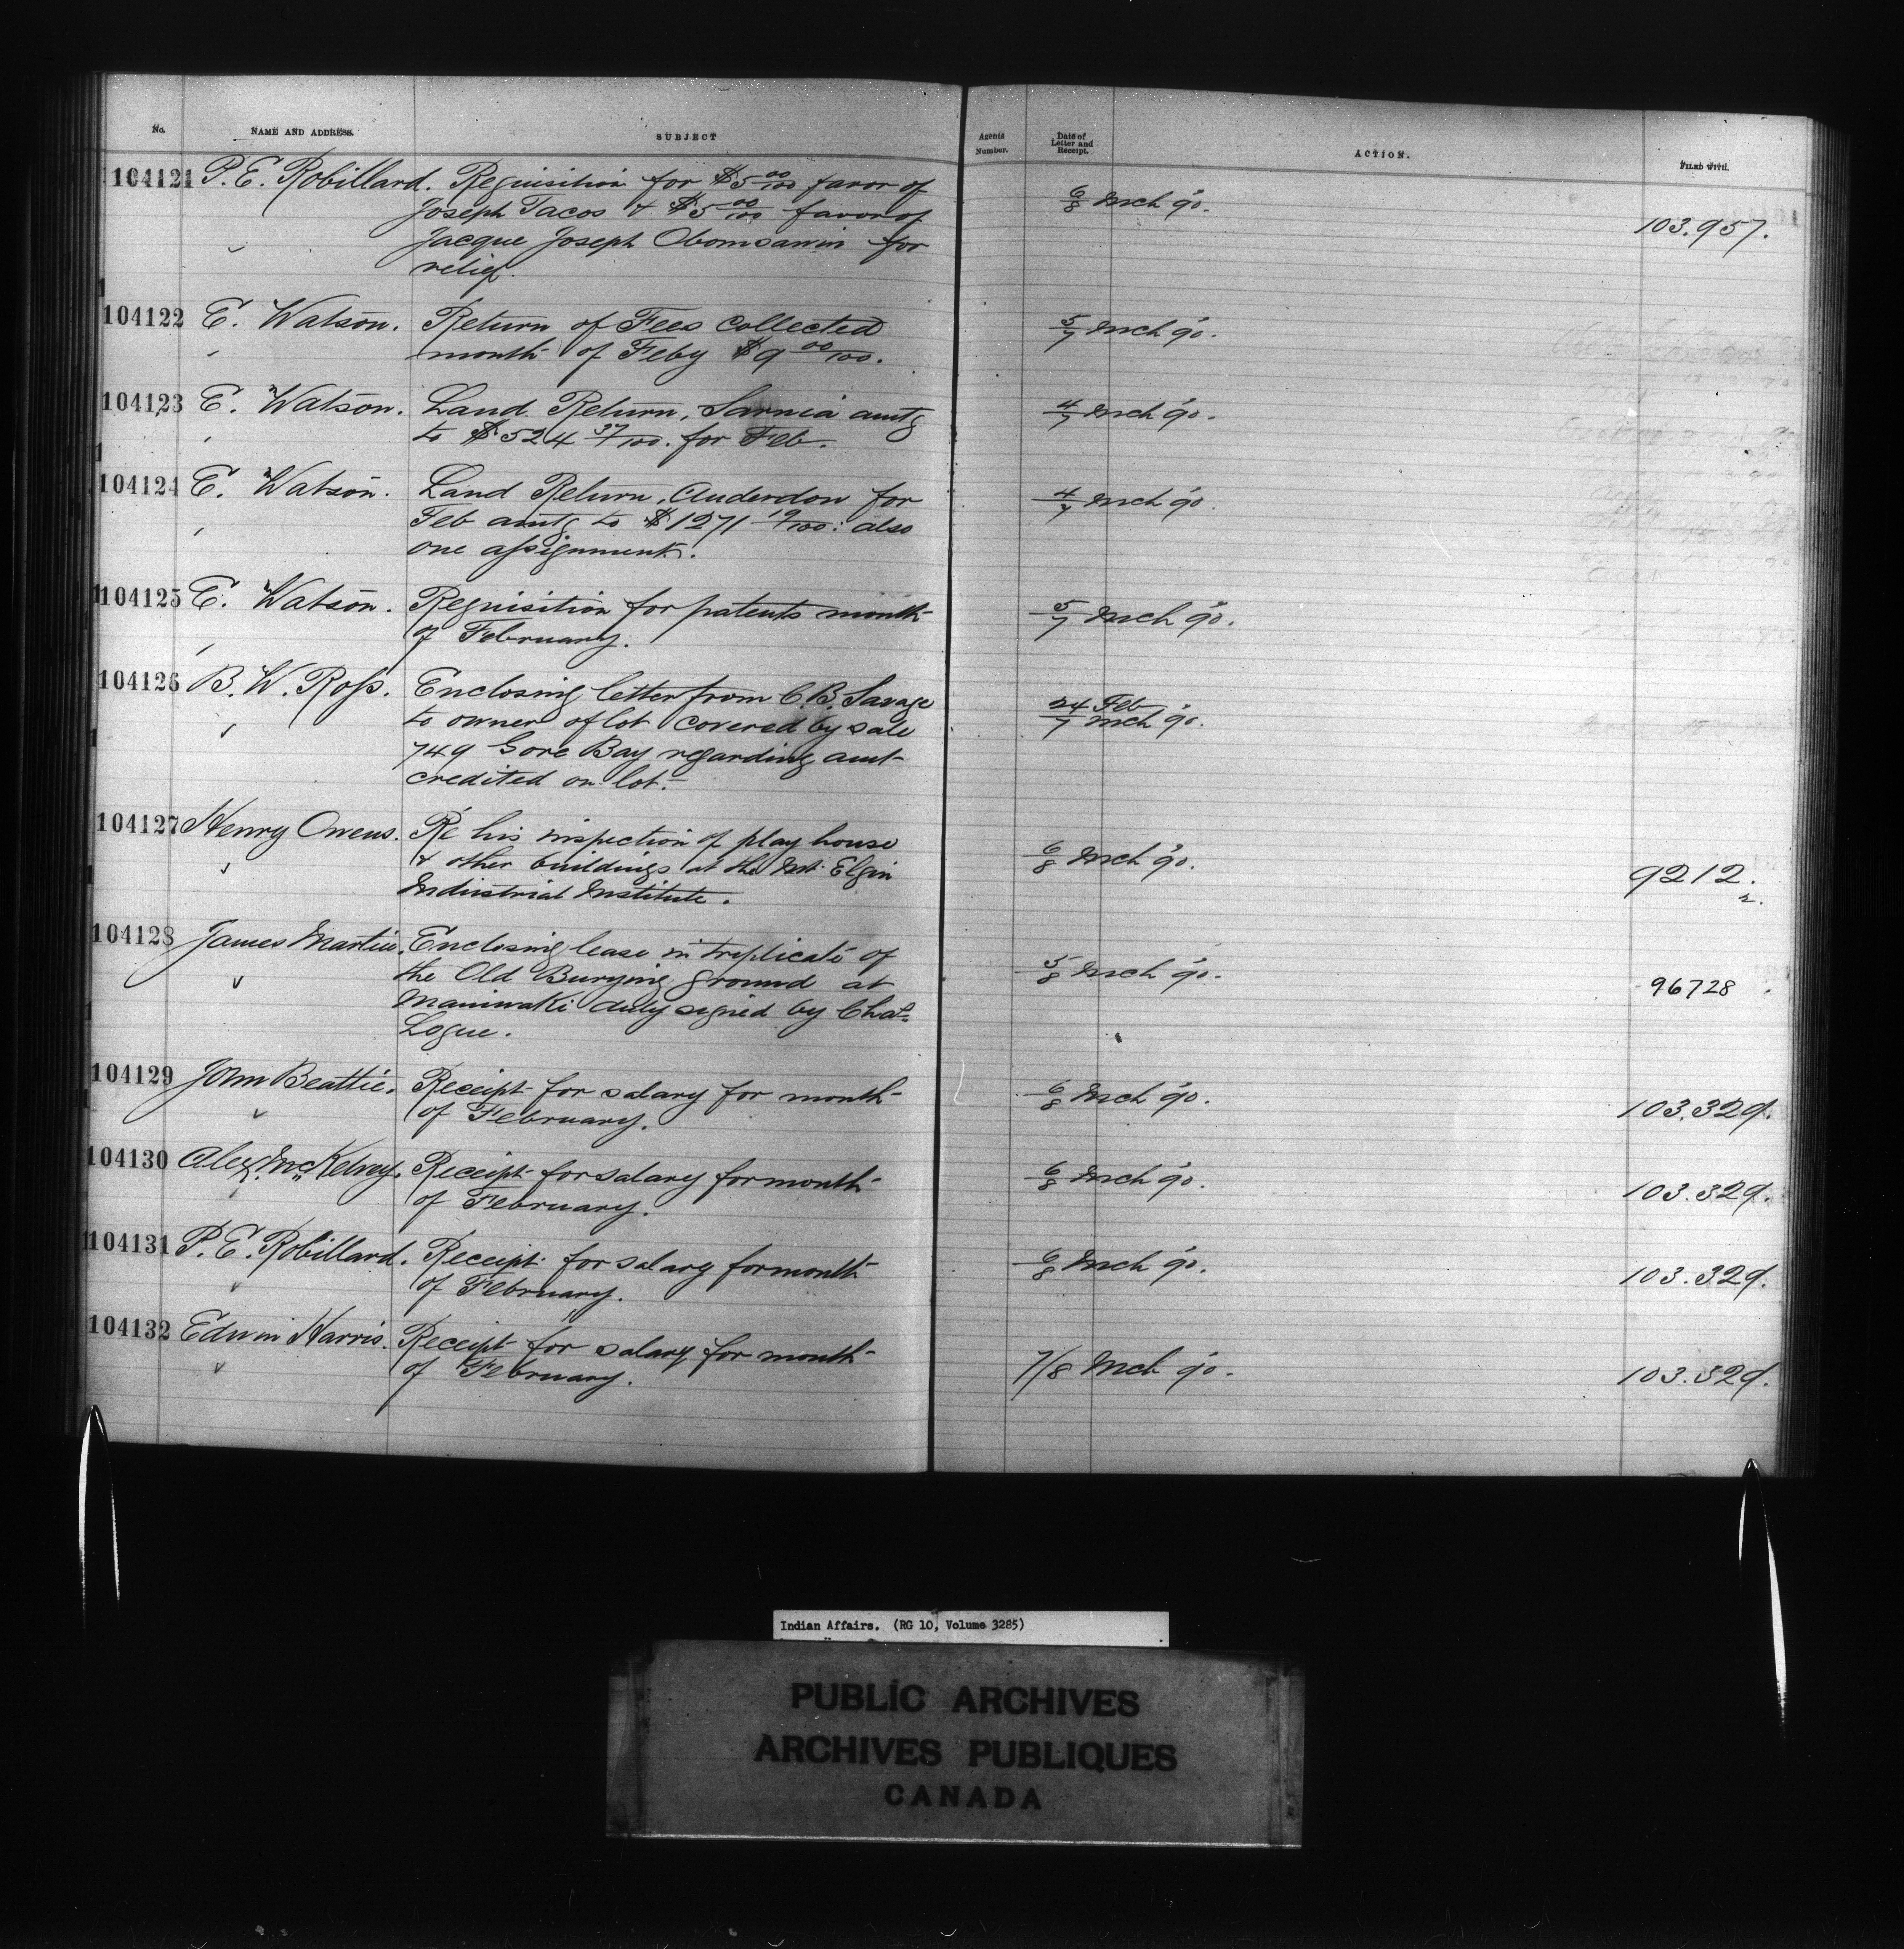 No. NAME AND ADDRESS. SUBJECT Agents Number. Date of Letter and Receipt. ACTION. FILED WITH.
104121 P. E. Robillard. Requisition for $5 00/100 favor of
Joseph Tacos & $5 00/100 favor of 6/8 Mch 90. 103.957.
Jacque Joseph Obomsawin for
relief.
104122 E. Watson. Return of Fees Collected 5/7 Mch 90.
month of Feby $9 00/100.
104123 E. Watson. Land Return, Sarnia amtg 4/7 Mch 90.
to $524 37/100. for Feb.
104124 E. Watson. Land Return, Anderdon for 4/7 Mch 90.
Feb amtg to $1271 19/100: also
one assignment.
104125 E. Watson. Requisition for patents month 5/7 Mch 90.
of February.
104126 B. W. Ross. Enclosing letter from C. B. Savage 24 Feb
to owner of lot covered by sale 7 Mch 90.
749 Gore Bay regarding amt
credited on lot.
104127 Henry Owens. Re his inspection of play house 6/8 Mch 90.
& other buildings at the Mt. Elgin 9212.
Industrial Institute. 2.
104128 James Martin. Enclosing lease in triplicate of
the Old Burying ground at 5/8 Mch 90. 96728
Maniwaki duly signed by Chas.
Logue.
104129 John Beattie. Receipt for salary for month 6/8 Mch 90. 103.329.
of February.
104130 Alex. McKelvey. Receipt for salary for month 6/8 Mch 90. 103.329.
of February.
104131 P. E. Robillard. Receipt for salary for month 6/8 Mch 90. 103.329.
of February.
104132 Edwin Harris. Receipt for salary for month 7/8 Mch 90. 103.329.
of February.
Indian Affairs. (RG 10, Volume 3285)
PUBLIC ARCHIVES
ARCHIVES PUBLIQUES
CANADA